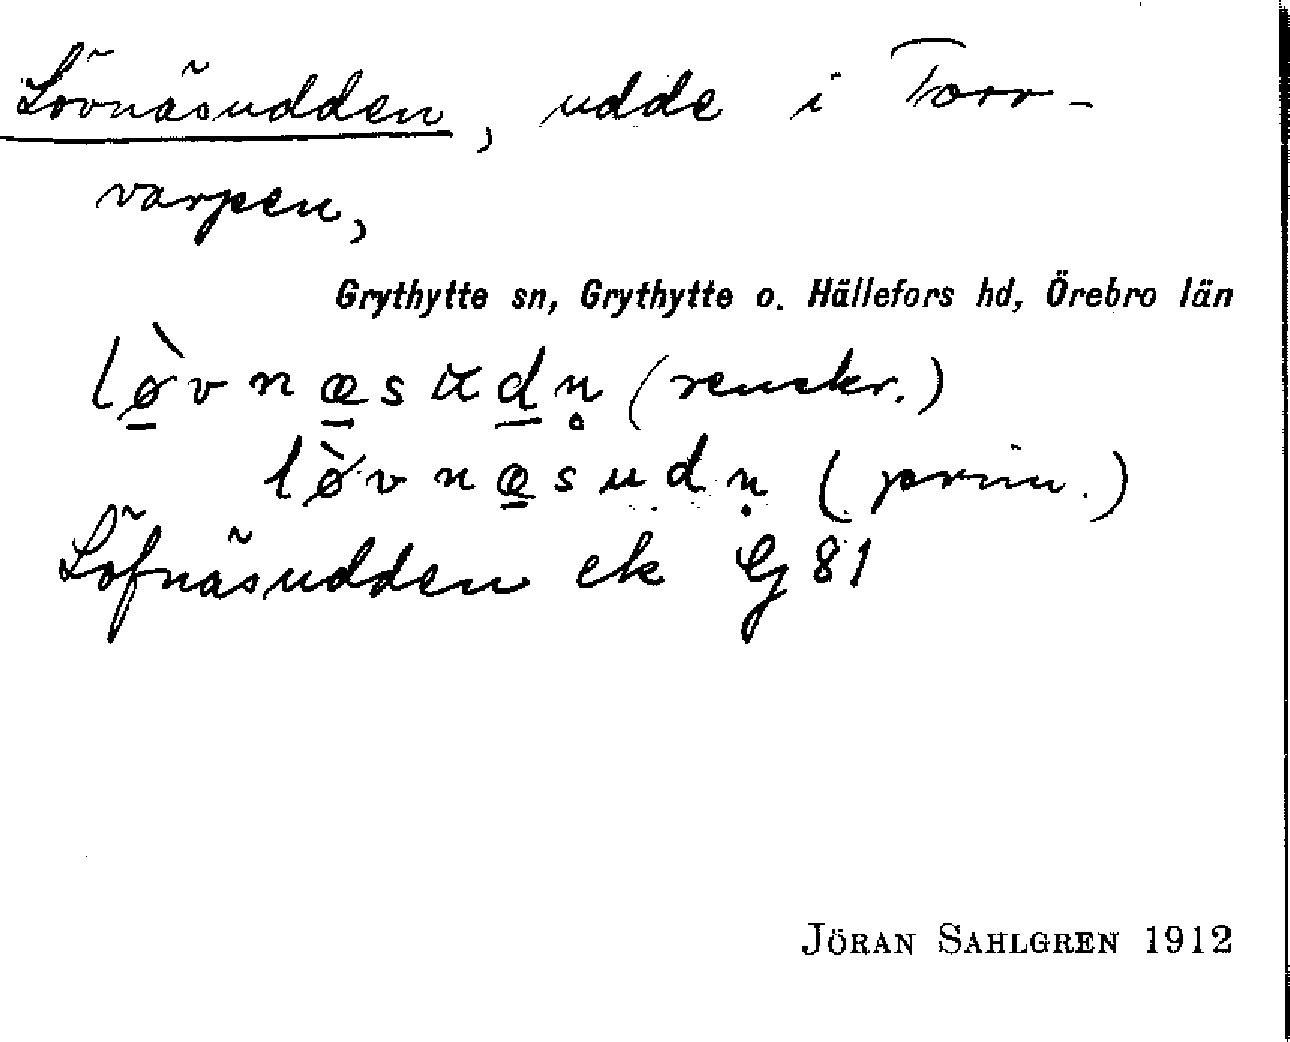 Lövnäsudden, udde i Torr-
varpen,
Grythytte sn, Grythytte o. Hällefors hd, Örebro län
lø̠̀vnæ̠sud̠n̥ (renskr.)
lø̀vnæ̠sudṇ (prim.)
Löfnäsudden ek G 81
JÖRAN SAHLGREN 1912